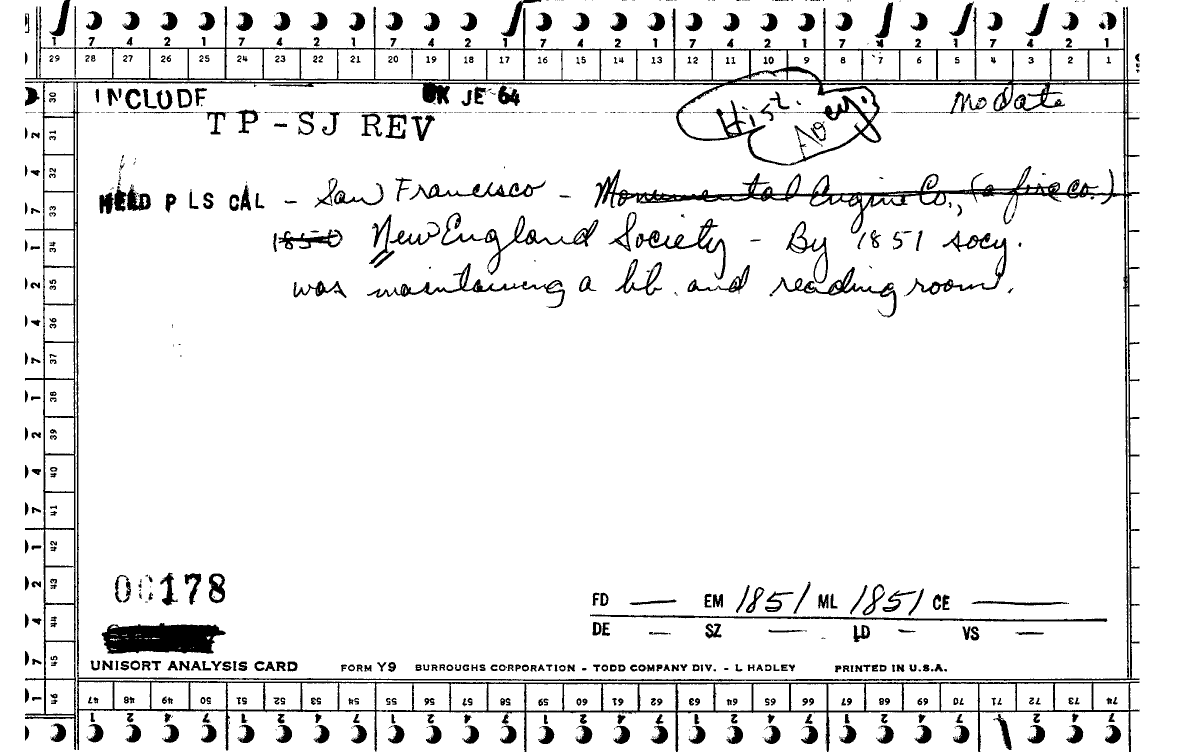 7 4 2 1 7 4 2 1 7 4 2 1 7 4 2 1 7 4 2 1 7 4 2 1 7 4 2 1
29 28 27 26 25 24 23 22 21 20 19 18 17 16 15 14 13 12 11 10 9 8 7 6 5 4 3 2 1
INCLUDE OK JE 64 Hist. no date
TP-SJ REV
HEAD P LS CAL - San Francisco - Monumental Engine Co., (a fire co.)
1850 New England Society - By 1851 socy.
was maintaining a lib. and reading room.
30
31
32
33
34
35
36
37
38
39
40
41
42
43
44
45
46
00178
FD — EM 1851 ML 1851 CE —
DE — SZ — LD — VS —
UNISORT ANALYSIS CARD FORM Y9 BURROUGHS CORPORATION - TODD COMPANY DIV. - L HADLEY PRINTED IN U.S.A.
47 48 49 50 51 52 53 54 55 56 57 58 59 60 61 62 63 64 65 66 67 68 69 70 71 72 73 74
1 2 4 7 1 2 4 7 1 2 4 7 1 2 4 7 1 2 4 7 1 2 4 7 1 2 4 7